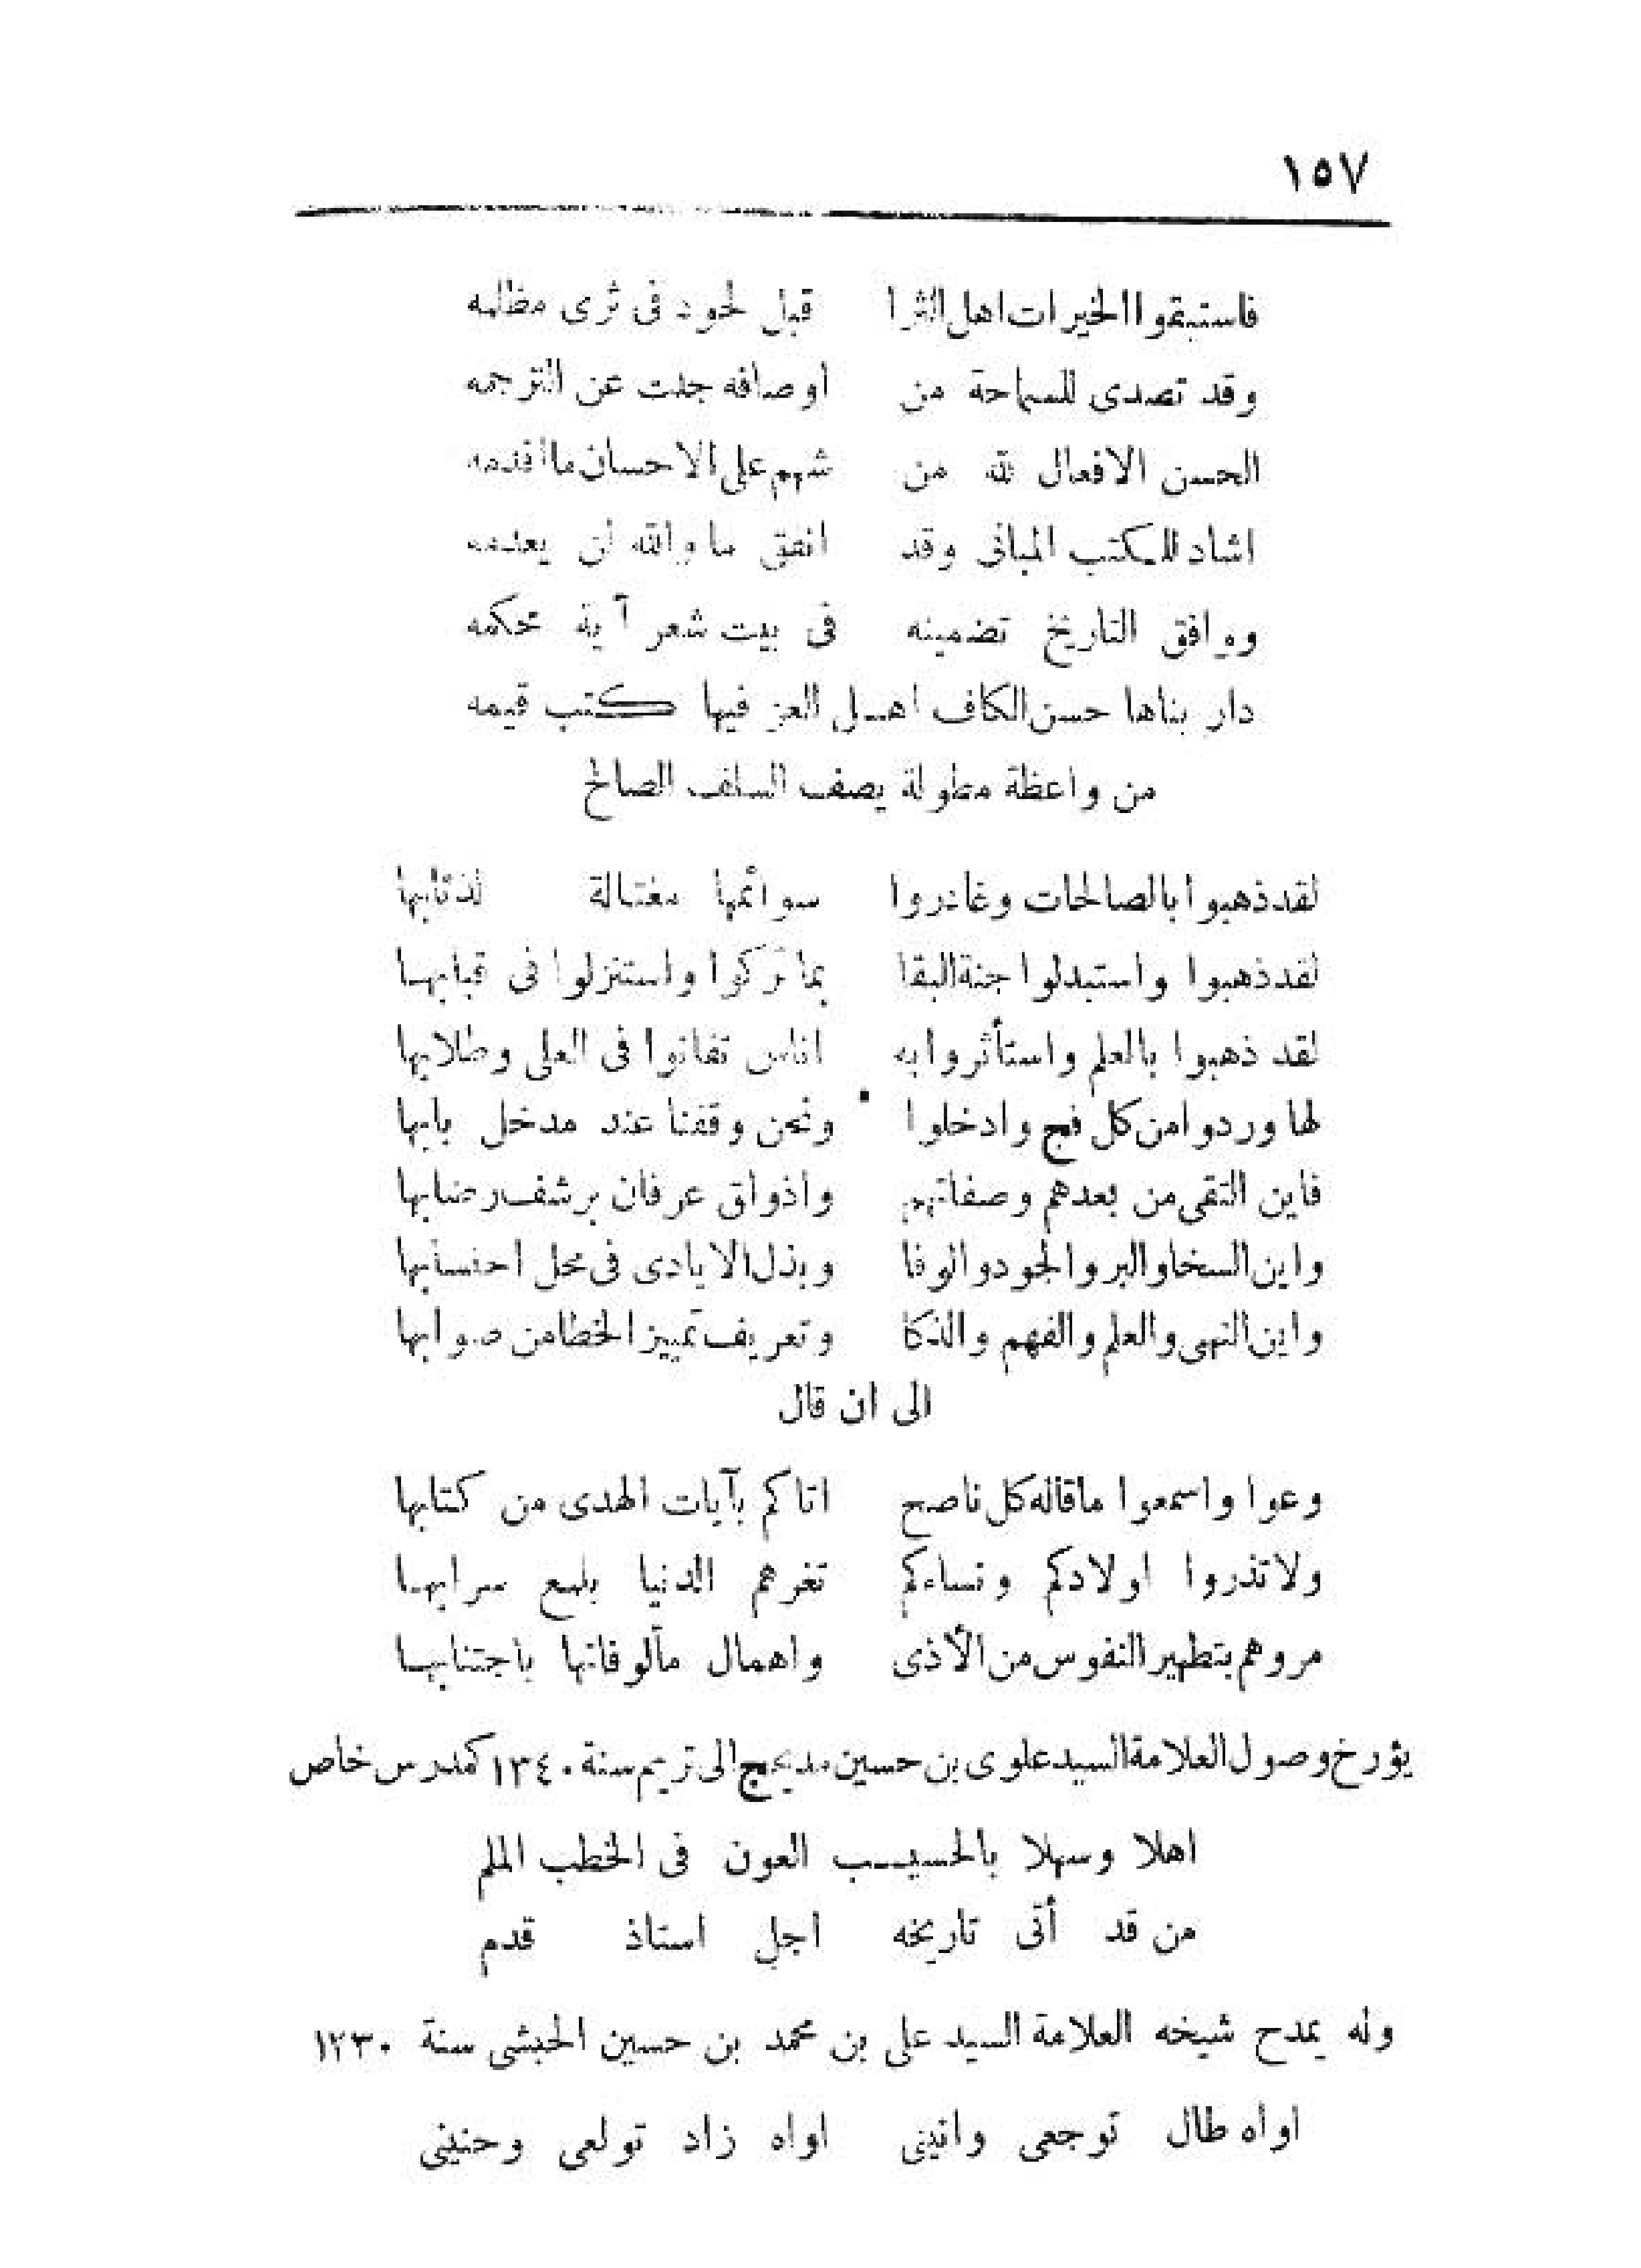 ١٥٧
فاستبقوا الخيرات اهل الثرا قبل لحود فى ثرى مظلمه
وقد تصدى للسماحة من اوصافه جلت عن الترجمه
الحسن الافعال لله من شهم على الاحسان ما اقدمه
اشاد للمكتب المبانى وقد انفق ما والله لن يعدمه
ووافق التاريخ تضمينه فى بيت شعر آية محكمه
دار بناها حسن الكاف اهل العز فيها كتب قيمه
من واعظة مطولة يصف السلف الصالح
لقد ذهبوا بالصالحات وغادروا سوائمها مغتالة لذئابها
لقد ذهبوا واستبدلوا جنة البقا بما تركوا واستنزلوا فى قبابها
لقد ذهبوا بالعلم واستأثروا به اناس تفانوا فى العلى وطلابها
لها وردوا من كل فج وادخلوا ونحن وقفنا عند مدخل بابها
فاين التقى من بعدهم وصفاتهم واذواق عرفان برشف رضابها
واين السخا والبر والجود والوفا وبذل الايادى فى محل احتسابها
واين النهى والعلم والفهم والذكا وتعريف تمييز الخطا من صوابها
الى ان قال
وعوا واسمعوا ما قاله كل ناصح اتاكم بآيات الهدى من كتابها
ولا تذروا اولادكم ونساءكم تغرهم الدنيا بلمع سرابها
مروهم بتطهير النفوس من الأذى واهمال مألوفاتها باجتنابها
يؤرخ وصول العلامة السيد علوى بن حسين مديحج الى تريم سنة ١٣٤٠ كمدرس خاص
اهلا وسهلا بالحسيب العون فى الخطب الملم
من قد أتى تاريخه اجل استاذ قدم
وله يمدح شيخه العلامة السيد على بن محمد بن حسين الحبشى سنة ١٢٣٠
اواه طال توجعى وانينى اواه زاد تولعى وحنينى